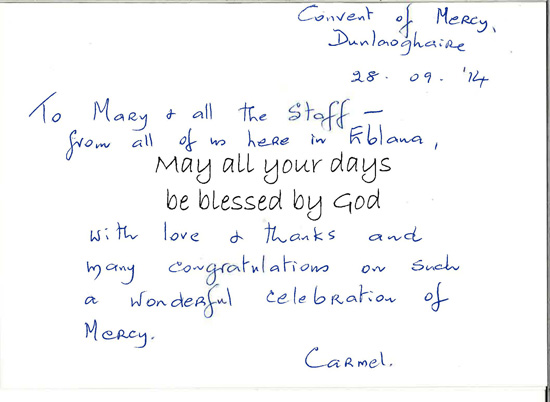 Convent of Mercy,
Dunlaoghaire
28. 09. '14
To Mary & all the Staff –
from all of us here in Eblana,
May all your days
be blessed by God
with love & thanks and
many congratulations on such
a wonderful celebration of
Mercy.
Carmel.